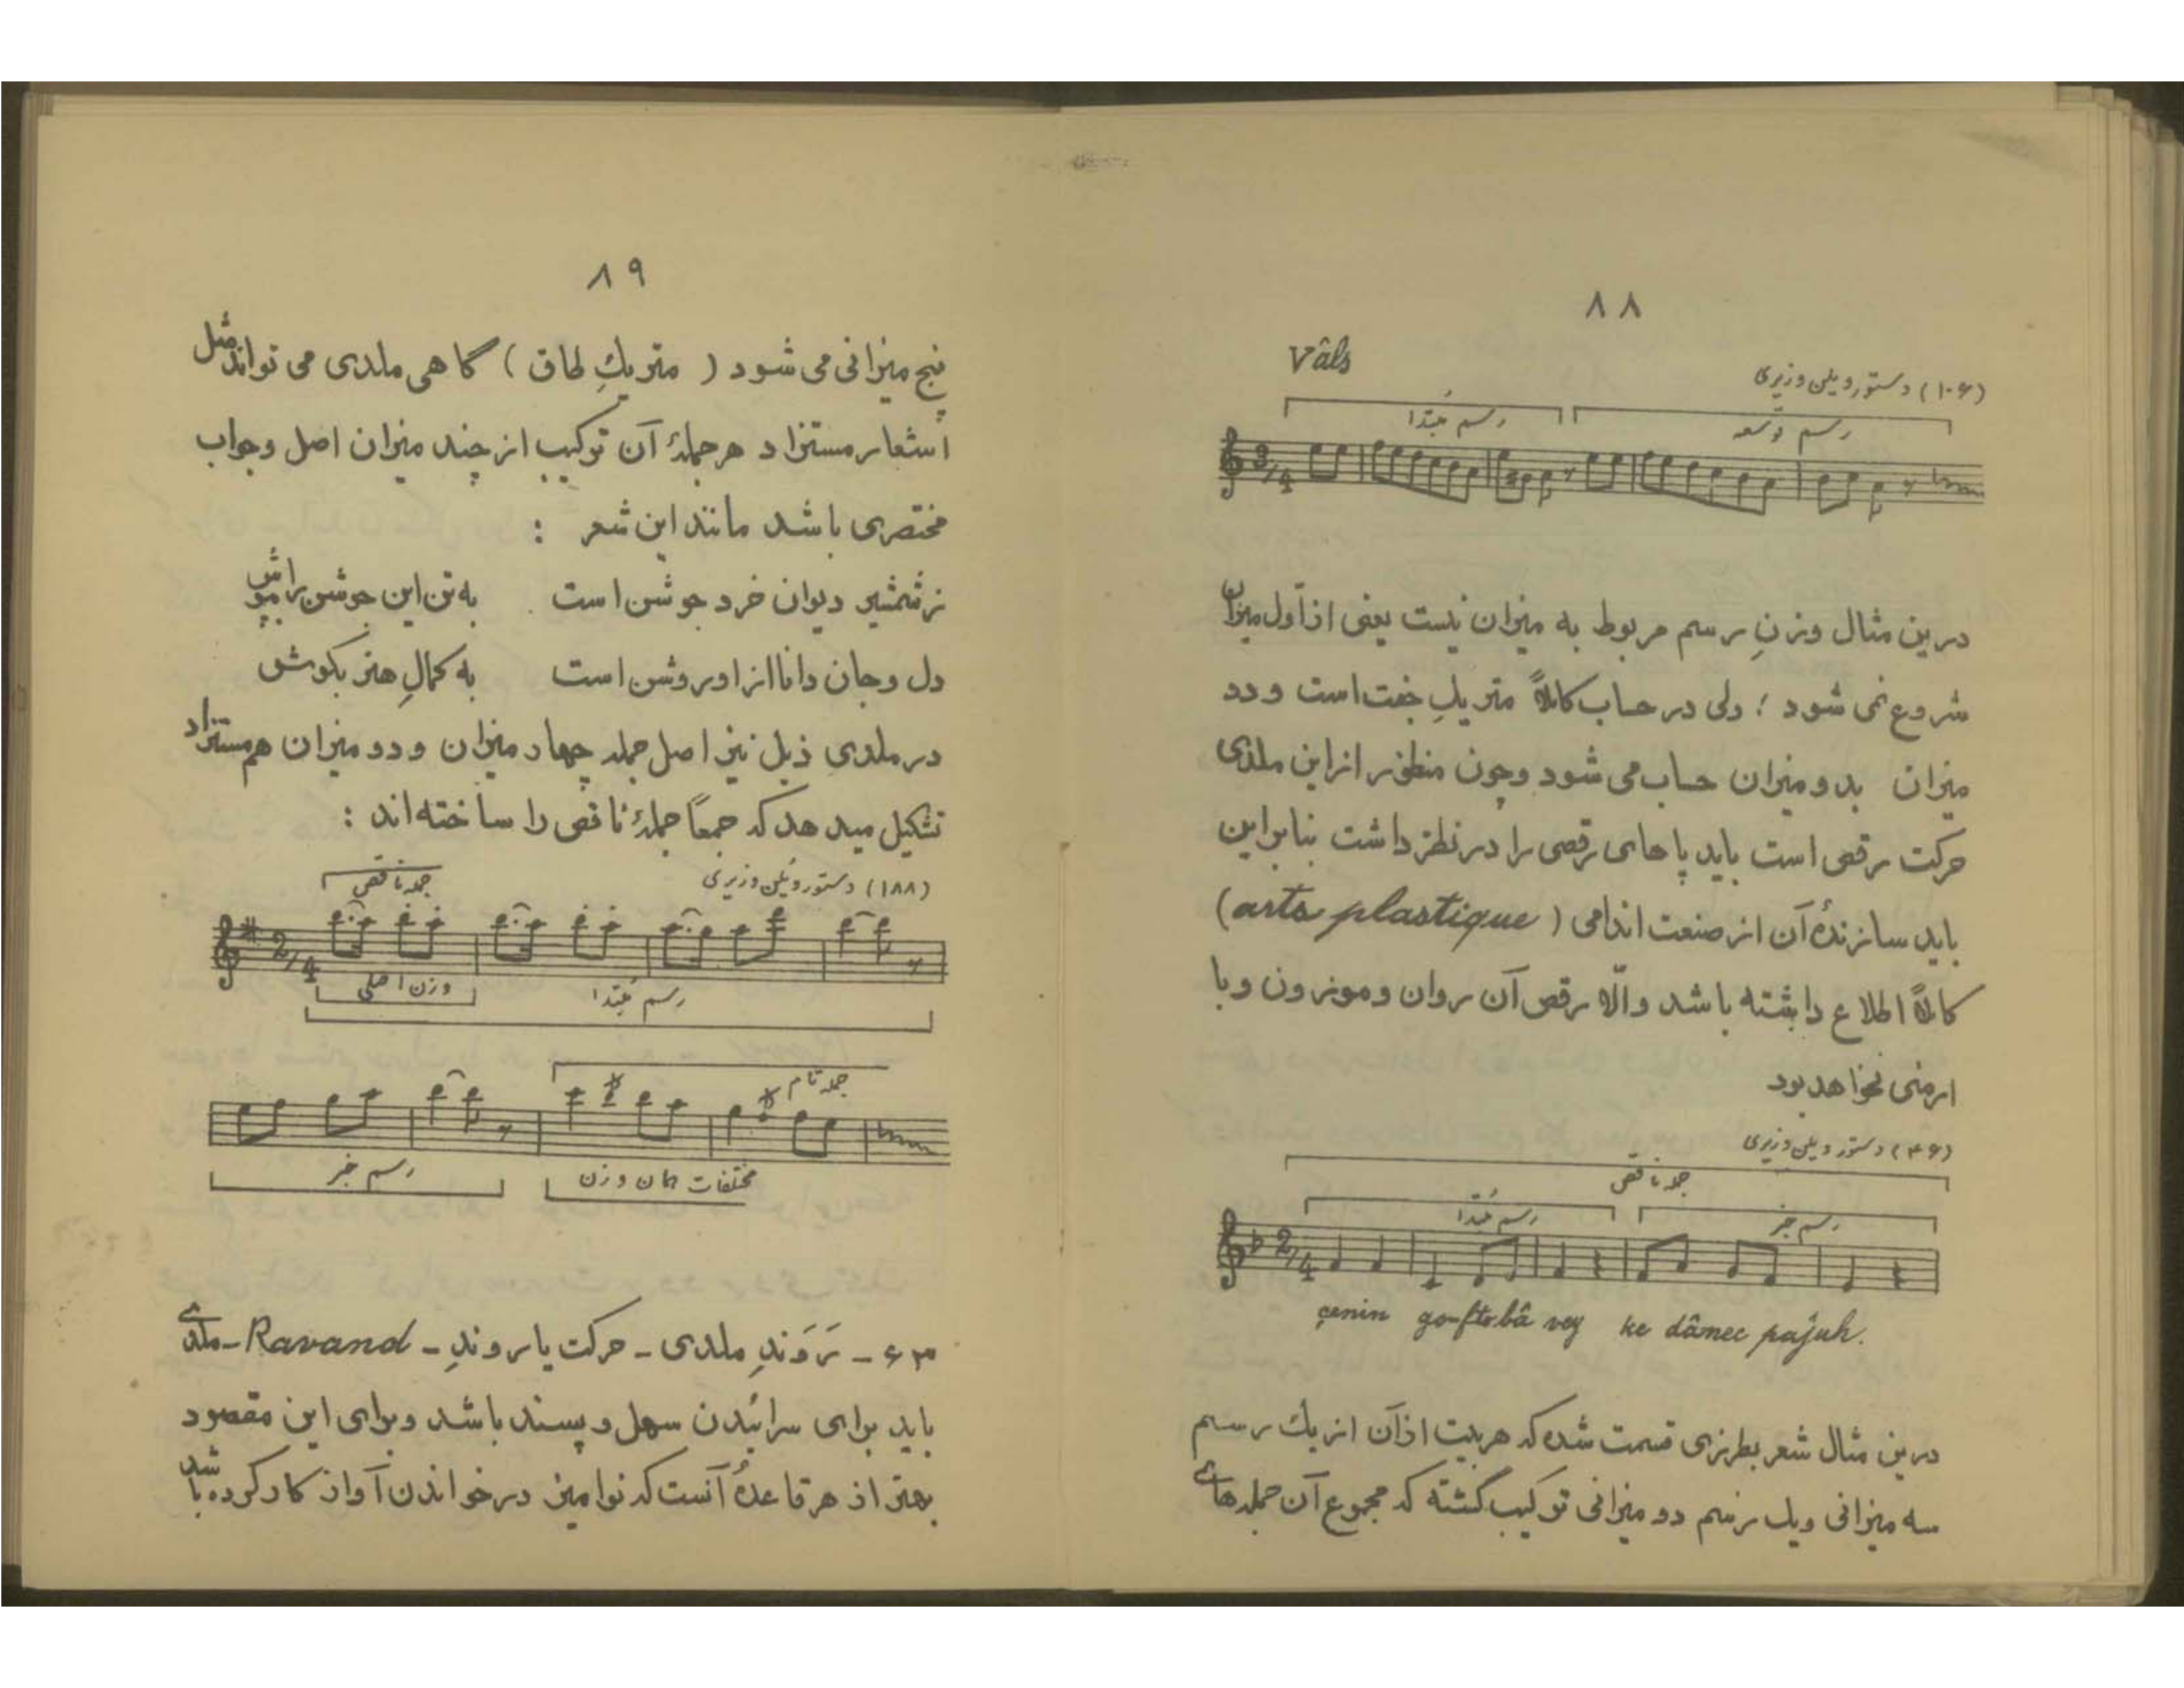 ۸۸
Vâls
(۱۰۶) دستور ویلن وزیری
رسم مُبتدا
رسم توسعه
3/4
درین مثال وزنِ رسم مربوط به میزان نیست یعنی از اول میزان
شروع نمی شود ؛ ولی در حساب کاملاً متریكِ جفت است و دو
میزان بدو میزان حساب می شود و چون منظور از این ملدی
حرکت رقص است باید پاهای رقصی را در نظر داشت بنابراین
باید سازندهٔ آن از صنعت اندامی (arts plastique)
کاملاً اطلاع داشته باشد و الّا رقص آن روان و موزون و با
ارمنی نخواهد بود
(۴۶) دستور ویلن وزیری
جمله ناقص
رسم مُبتدا
رسم خبر
2/4
çenin go-fto bâ vey ke dâmec pajuh.
درین مثال شعر بطرزی قسمت شده که هر بیت از آن از یك رسم
سه میزانی و یك رسم دو میزانی ترکیب گشته که مجموع آن جمله های
۸۹
پنج میزانی می شود ( متریكِ طاق ) گاهی ملدی می تواند مثل
اشعار مستزاد هر جملهٔ آن ترکیب از چند میزان اصل و جواب
مختصری باشد مانند این شعر :
ز شمشیر دیوان خرد جوشن است به تن این جوشن را بپوش
دل و جان دانا از او روشن است به کمالِ هنر بکوش
در ملدی ذیل نیز اصل جمله چهار میزان و دو میزان هم مستزاد
تشکیل میدهد که جمعاً جملهٔ ناقص را ساخته اند :
(۱۸۸) دستور ویلن وزیری
جمله ناقص
2/4
وزن اصلی
رسم مُبتدا
جمله تام
رسم خبر
مختلفات همان وزن
۶۳ - رَوَندِ ملدی - حرکت یا روندِ - Ravand - ملدی
باید برای سرائیدن سهل و پسند باشد و برای این مقصود
بهتر از هر قاعدهٔ آنست که نوامیز در خواندن آواز کار کرده باشد